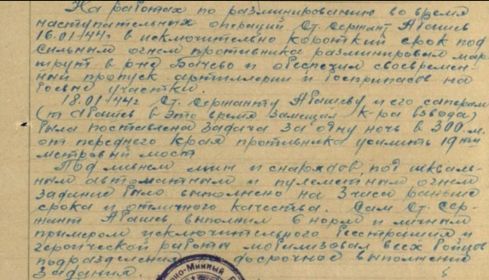 На работах по разминированию во время
наступательных операций Ст. Сержант Абашев
16.01.44г. в исключительно короткий срок под
сильным огнем противника разминировал мар
шрут в р-не Бачево и обеспечил своевремен-
ный пропуск артиллерии и боеприпасов на
боевые участки.
18.01.44г. Ст. Сержанту Абашеву и его саперам
(т. Абашев в это время замещал к-ра взвода)
была поставлена задача за одну ночь в 300 м.
от переднего края противника усилить
метровый мост
Под ливнем мин и снарядов, под шкваль-
ным автоматным и пулеметным огнем
задание было выполнено на 3 часа раньше
срока и отличного качества. Сам Ст. Сер-
жант Абашев выполнил 6 норм и личным
примером исключительного бесстрашия и
героической работы мобилизовал всех бойцов
подразделения досрочное выполнение
задания.
но-Минный